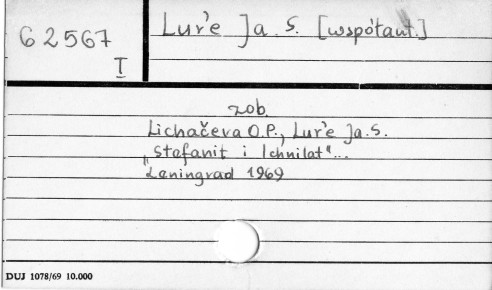 62567
I
Lur'e Ja. S. [współaut.]
zob.
Lichačeva O.P., Lur'e Ja.S.
„Stefanit i Ichnilat"...
Leningrad 1969
DUJ 1078/69 10.000